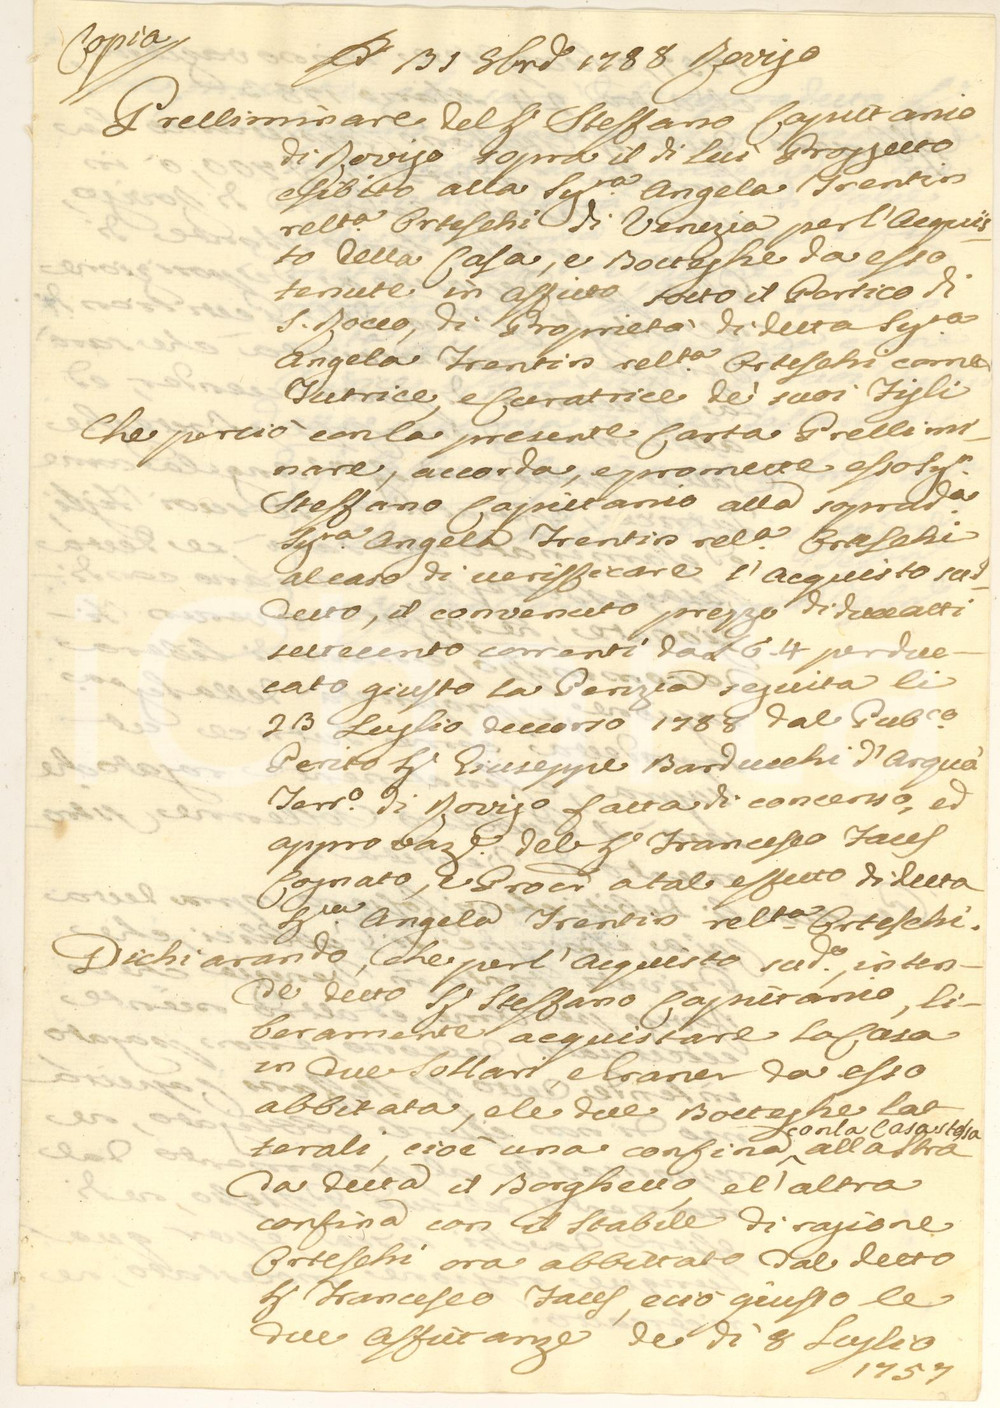 Copia
Adì 31 8brẽ 1788 Rovigo
Prelliminare del Sr Steffano Caputtanio
di Rovigo sopra il di lui Proggetto
esibito alla Sigra Angela Trentin
relta Orteschi di Venezia per l'Acquis-
to della Casa, e Botteghe da esso
tenute in affitto sotto il Portico di
S. Rocco, di Proprietà di detta Sigra
Angela Trentin relta Orteschi come
Tutrice, e Curatrice de' suoi Figli
Che perciò con la presente Carta Prellimi-
nare, accorda, e promette esso Sigr
Steffano Caputtanio alla sopradta
Sigra Angela Trentin relta Orteschi
al caso di veriffìcare l'acquisto sud-
detto, il convenuto prezzo di duccatti
settecento correnti da £ 6:4 per duc-
cato giusto la Perizia seguita li
23 Luglio decorso 1788 dal Pubco
Perito Sr Giuseppe Barducchi d'Arquà
Terro di Rovigo fatta di concenso, ed
approvaze del Sr Francesco Faces
Cognato, e Procr a tal effetto di detta
Sra Angela Trentin relta Orteschi.
Dichiarando, che per l'Acquisto sudo, inten-
de detto Sr Steffano Caputtanio, li-
beramente acquistare la Casa
in due Sollari, e Graner da esso
abbitata, e le due Botteghe lat-
terali, cioè una confina alla altra
con la Casa stessa
da detta il Borghetto, e l'altra
confina con il Stabile di ragione
Orteschi ora abbittato dal detto
Sr Francesco Faces, e ciò giusto le
due Affittanze de dì 8 Luglio
1757